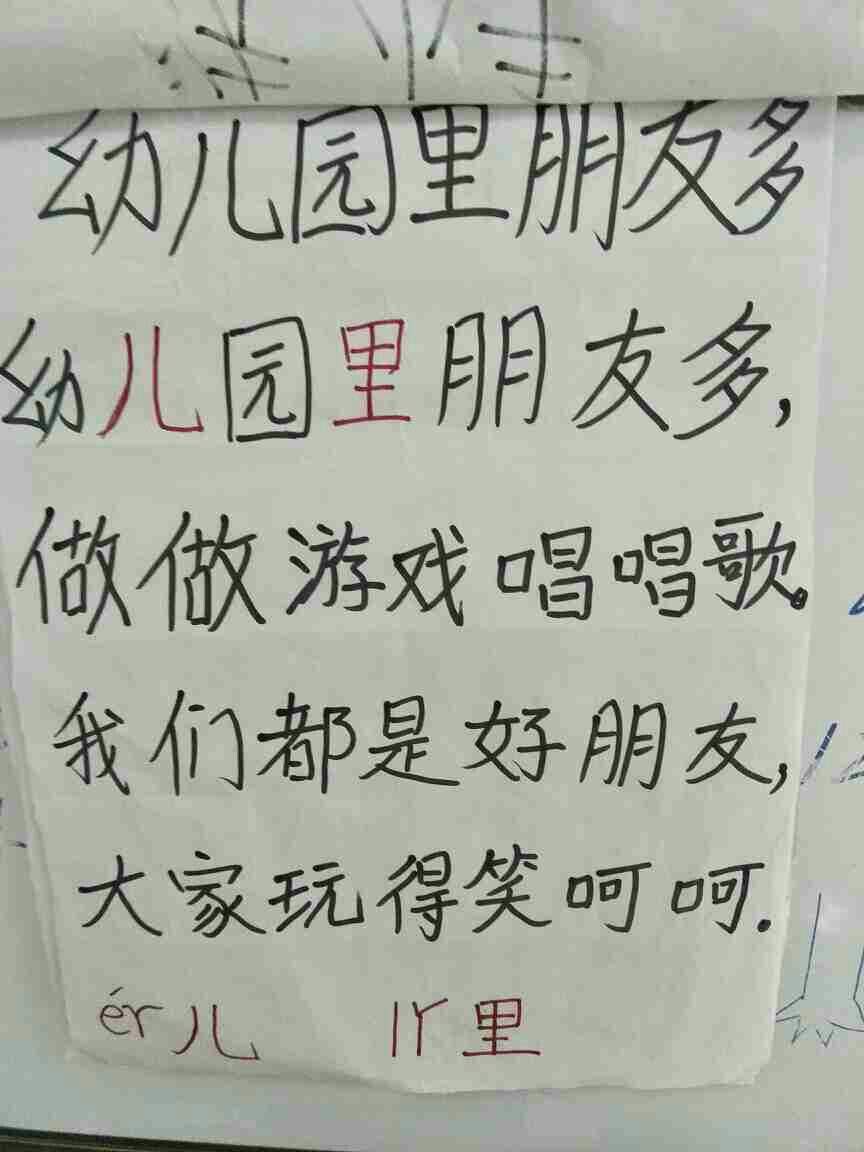 幼儿园里朋友多
幼儿园里朋友多,
做做游戏唱唱歌。
我们都是好朋友,
大家玩得笑呵呵.
ér儿 lǐ里